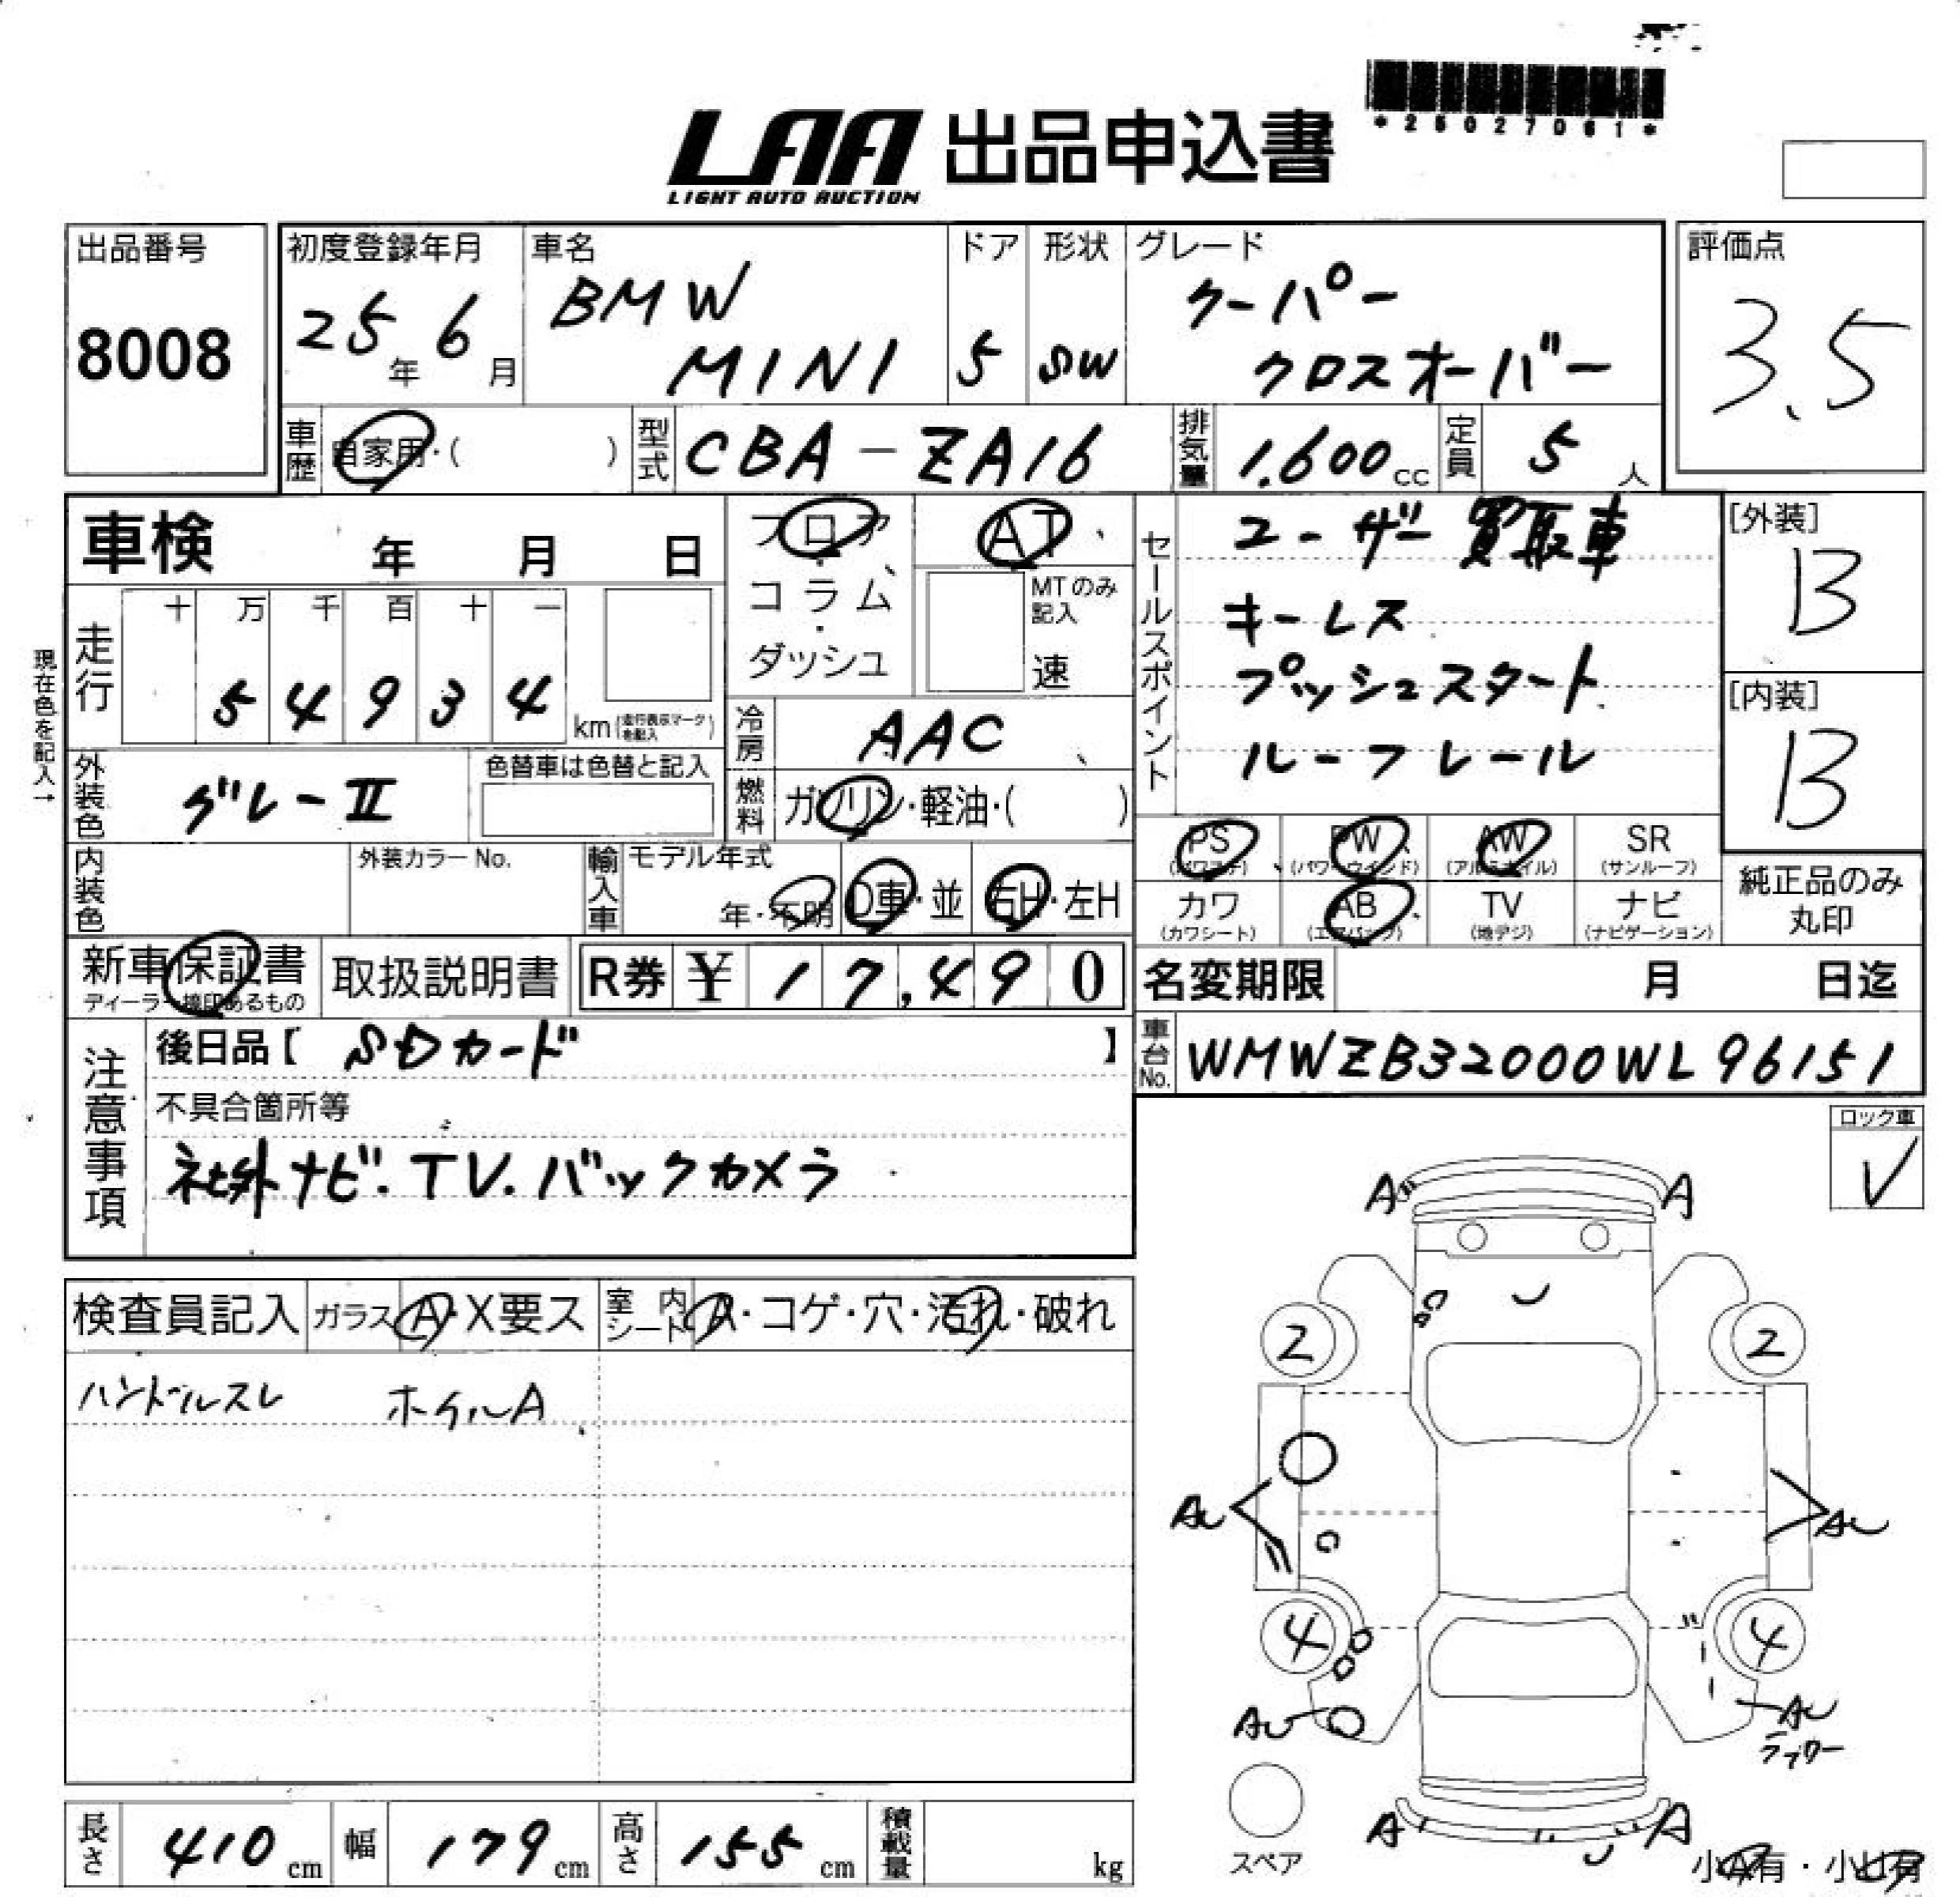 *25027061*
LAA 出品申込書
LIGHT AUTO AUCTION
出品番号
8008
初度登録年月
25年6月
車名
BMW
MINI
ドア
5
形状
SW
グレード
クーパー
クロスオーバー
評価点
3.5
車歴
自家用・( )
型式
CBA-ZA16
排気量
1.600cc
定員
5人
車検 年 月 日
フロア
コラム
ダッシュ
AT
MTのみ
記入
速
セールスポイント
ユーザー買取車
キーレス
プッシュスタート
ルーフレール
[外装]
B
[内装]
B
現在色を記入→
走行
十 万 千 百 十 一
5 4 9 3 4
km(走行表示マークを記入)
冷房
AAC
外装色
グレーII
色替車は色替と記入
燃料
ガソリン・軽油・( )
PS PW AW SR
(パワステ) (パワーウインド) (アルミホイル) (サンルーフ)
カワ AB TV ナビ
(カワシート) (エアバッグ) (地デジ) (ナビゲーション)
純正品のみ
丸印
内装色
外装カラーNo.
輸入車
モデル年式
年・不明
D車・並
右H・左H
新車保証書
ディーラー捺印あるもの
取扱説明書
R券 ¥ 17,490
名変期限 月 日迄
注意事項
後日品【 SDカード 】
車台No.
WMWZB32000WL96151
不具合箇所等
社外ナビ.TV.バックカメラ
ロック車
✓
検査員記入
ガラス A・X要ス
室内シート A・コゲ・穴・汚れ・破れ
ハンドルスレ ホイルA
A A
2 2
AU AU
4 4
AU AU
スペア
A A
小A有・小U有
長さ 410cm
幅 179cm
高さ 155cm
積載量 kg